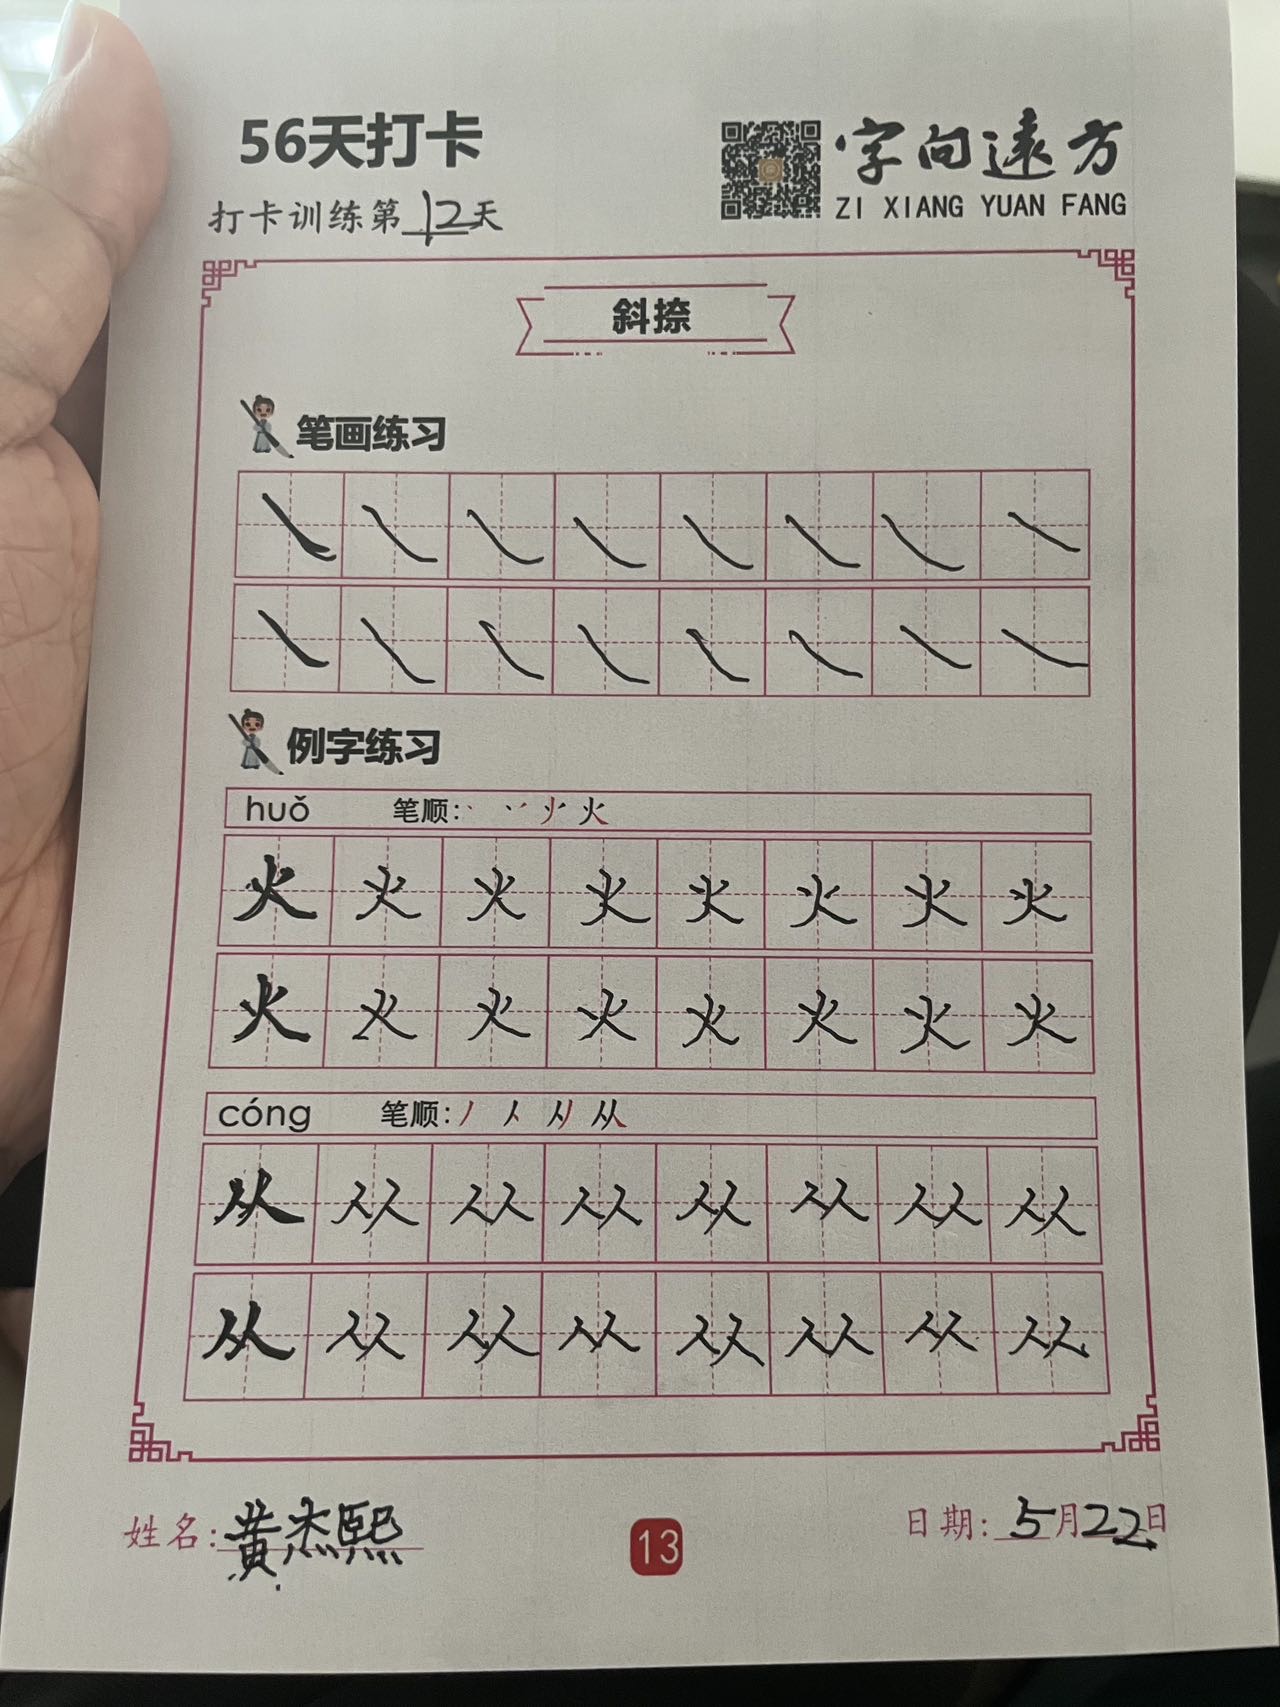 56天打卡
字向远方
ZI XIANG YUAN FANG
打卡训练第12天
斜捺
笔画练习
例字练习
huǒ 笔顺:
火 火 火 火 火 火 火 火
火 火 火 火 火 火 火 火
cóng 笔顺:
从 从 从 从 从 从 从 从
从 从 从 从 从 从 从 从
姓名:黄杰熙
13
日期:5月22日